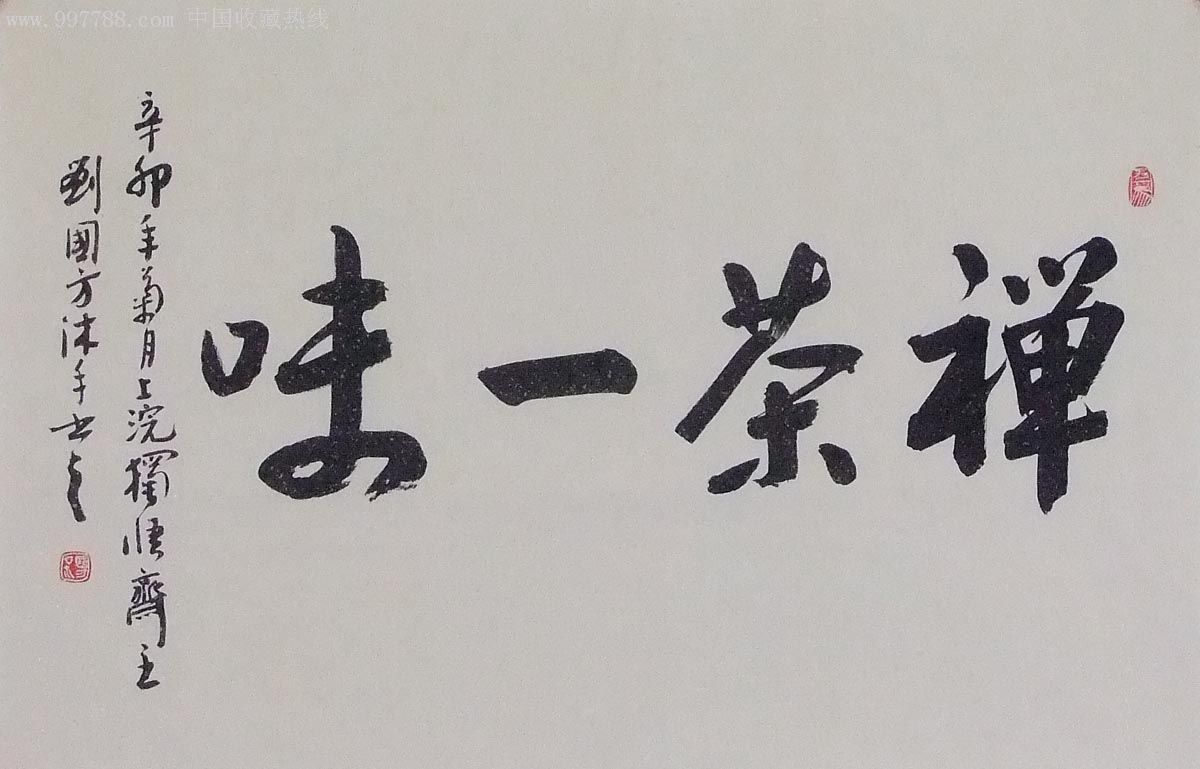 www.997788.com 中国收藏热线
禅茶一味
辛卯年菊月上浣獨悟齋主
劉國方沐手書